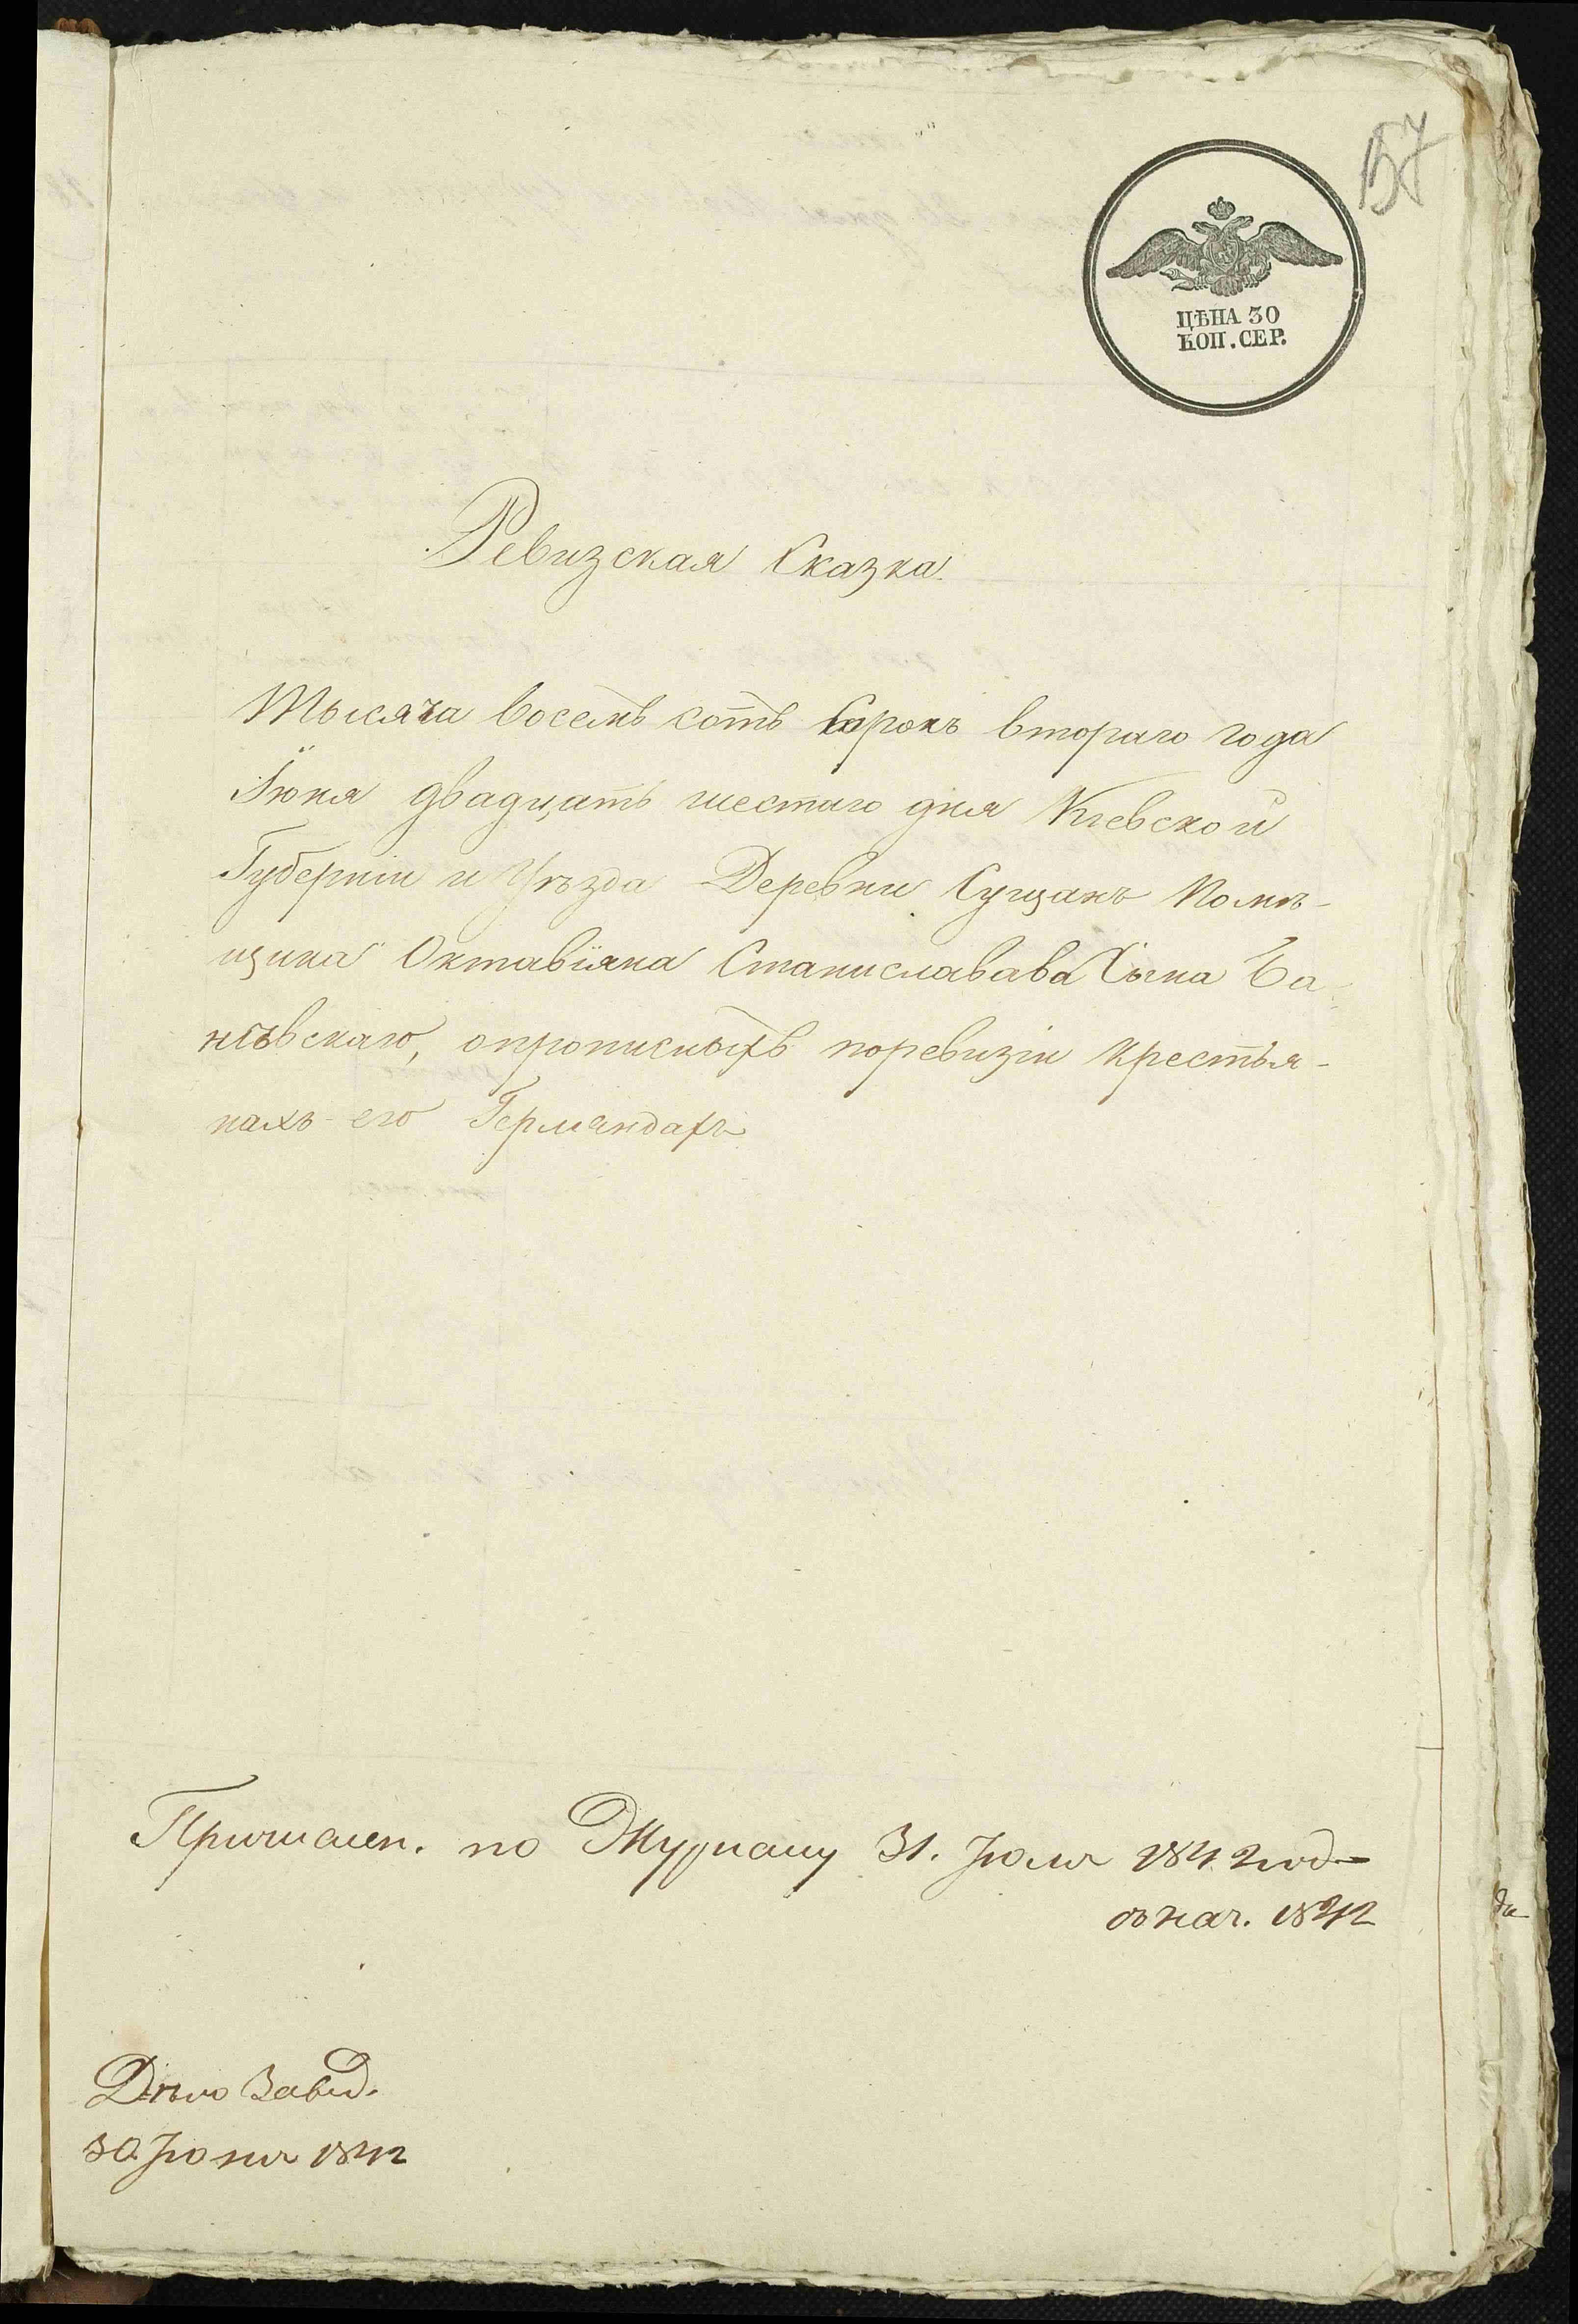 57
ЦѢНА 30
КОП. СЕР.
Ревизская Сказка
Тысяча восемь сотъ сорокъ втораго года
Іюня двадцать шестаго дня Кіевской
Губерніи и Уѣзда Деревни Сущанъ Помѣ-
щика Октавіяна Станиславава Сына
опрописныхъ поревизіи крестья-
нахъ его
по Журналу 31. Іюля 1842 год
1842
Дѣло Завед.
30 Іюня 1842